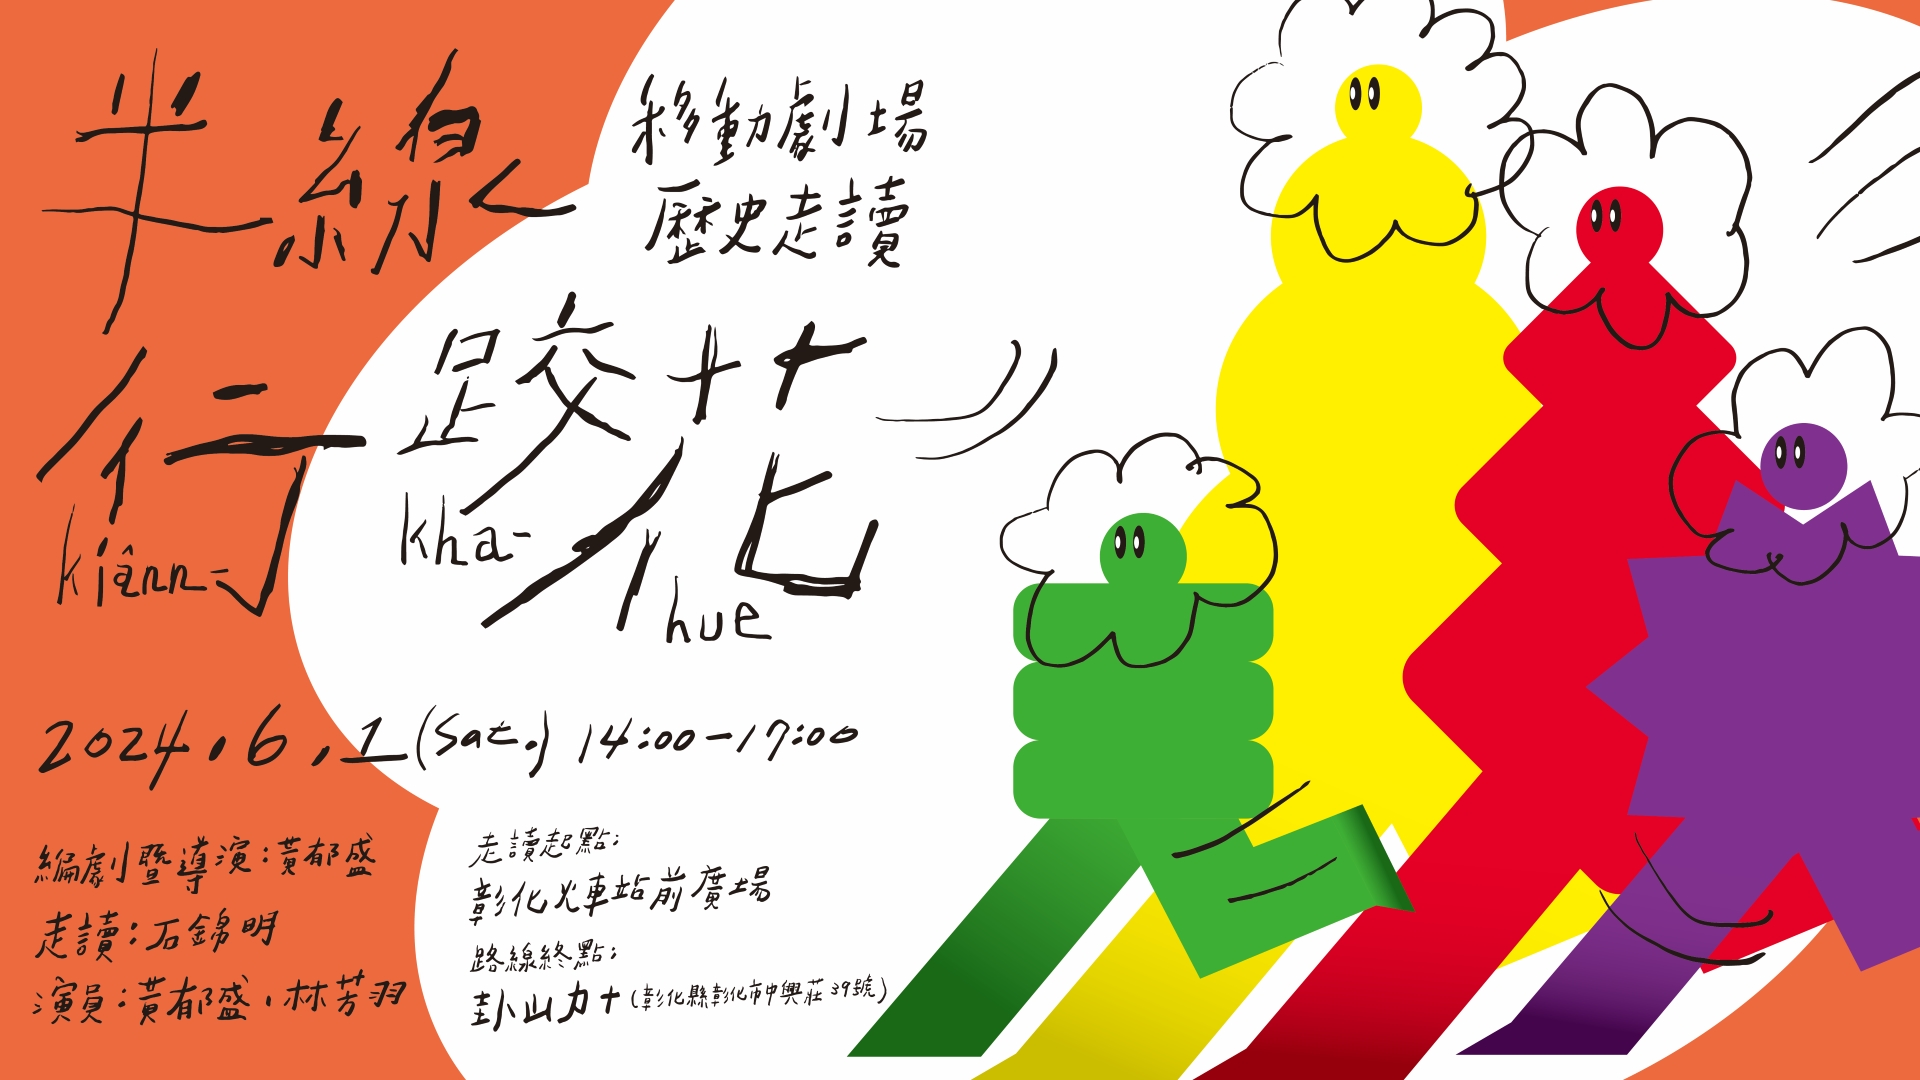 半線
行跤花
kiânn-kha-hue
移動劇場
歷史走讀
2024.6.1(Sat.) 14:00-17:00
編劇暨導演:黃郁盛
走讀:石錦明
演員:黃郁盛、林芳羽
走讀起點:
彰化火車站前廣場
路線終點:
卦山力十(彰化縣彰化市中興莊39號)